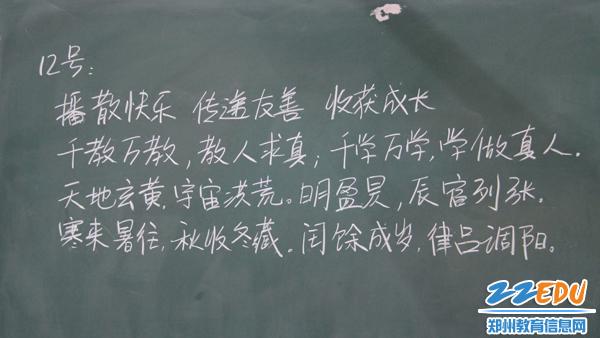 12号:
播散快乐 传递友善 收获成长
千教万教,教人求真;千学万学,学做真人.
天地玄黄,宇宙洪荒。日月盈昃,辰宿列张.
寒来暑往,秋收冬藏.闰馀成岁,律吕调阳。
ZZEDU
郑州教育信息网